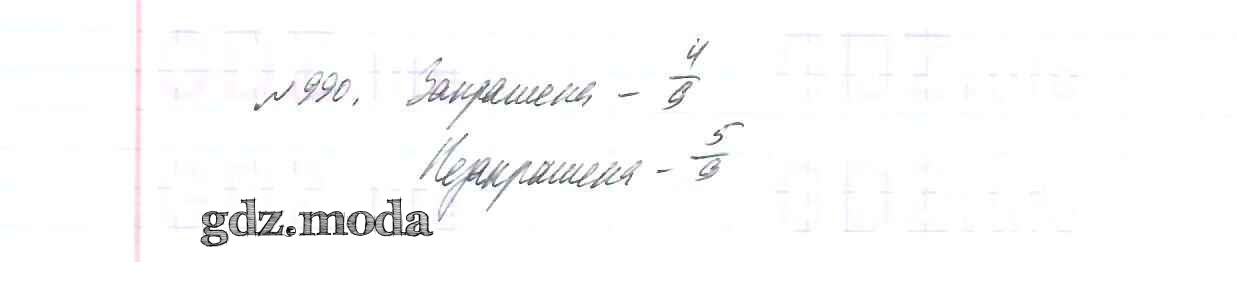 №990. Закрашена - 4/9
Незакрашена - 5/9
gdz.moda